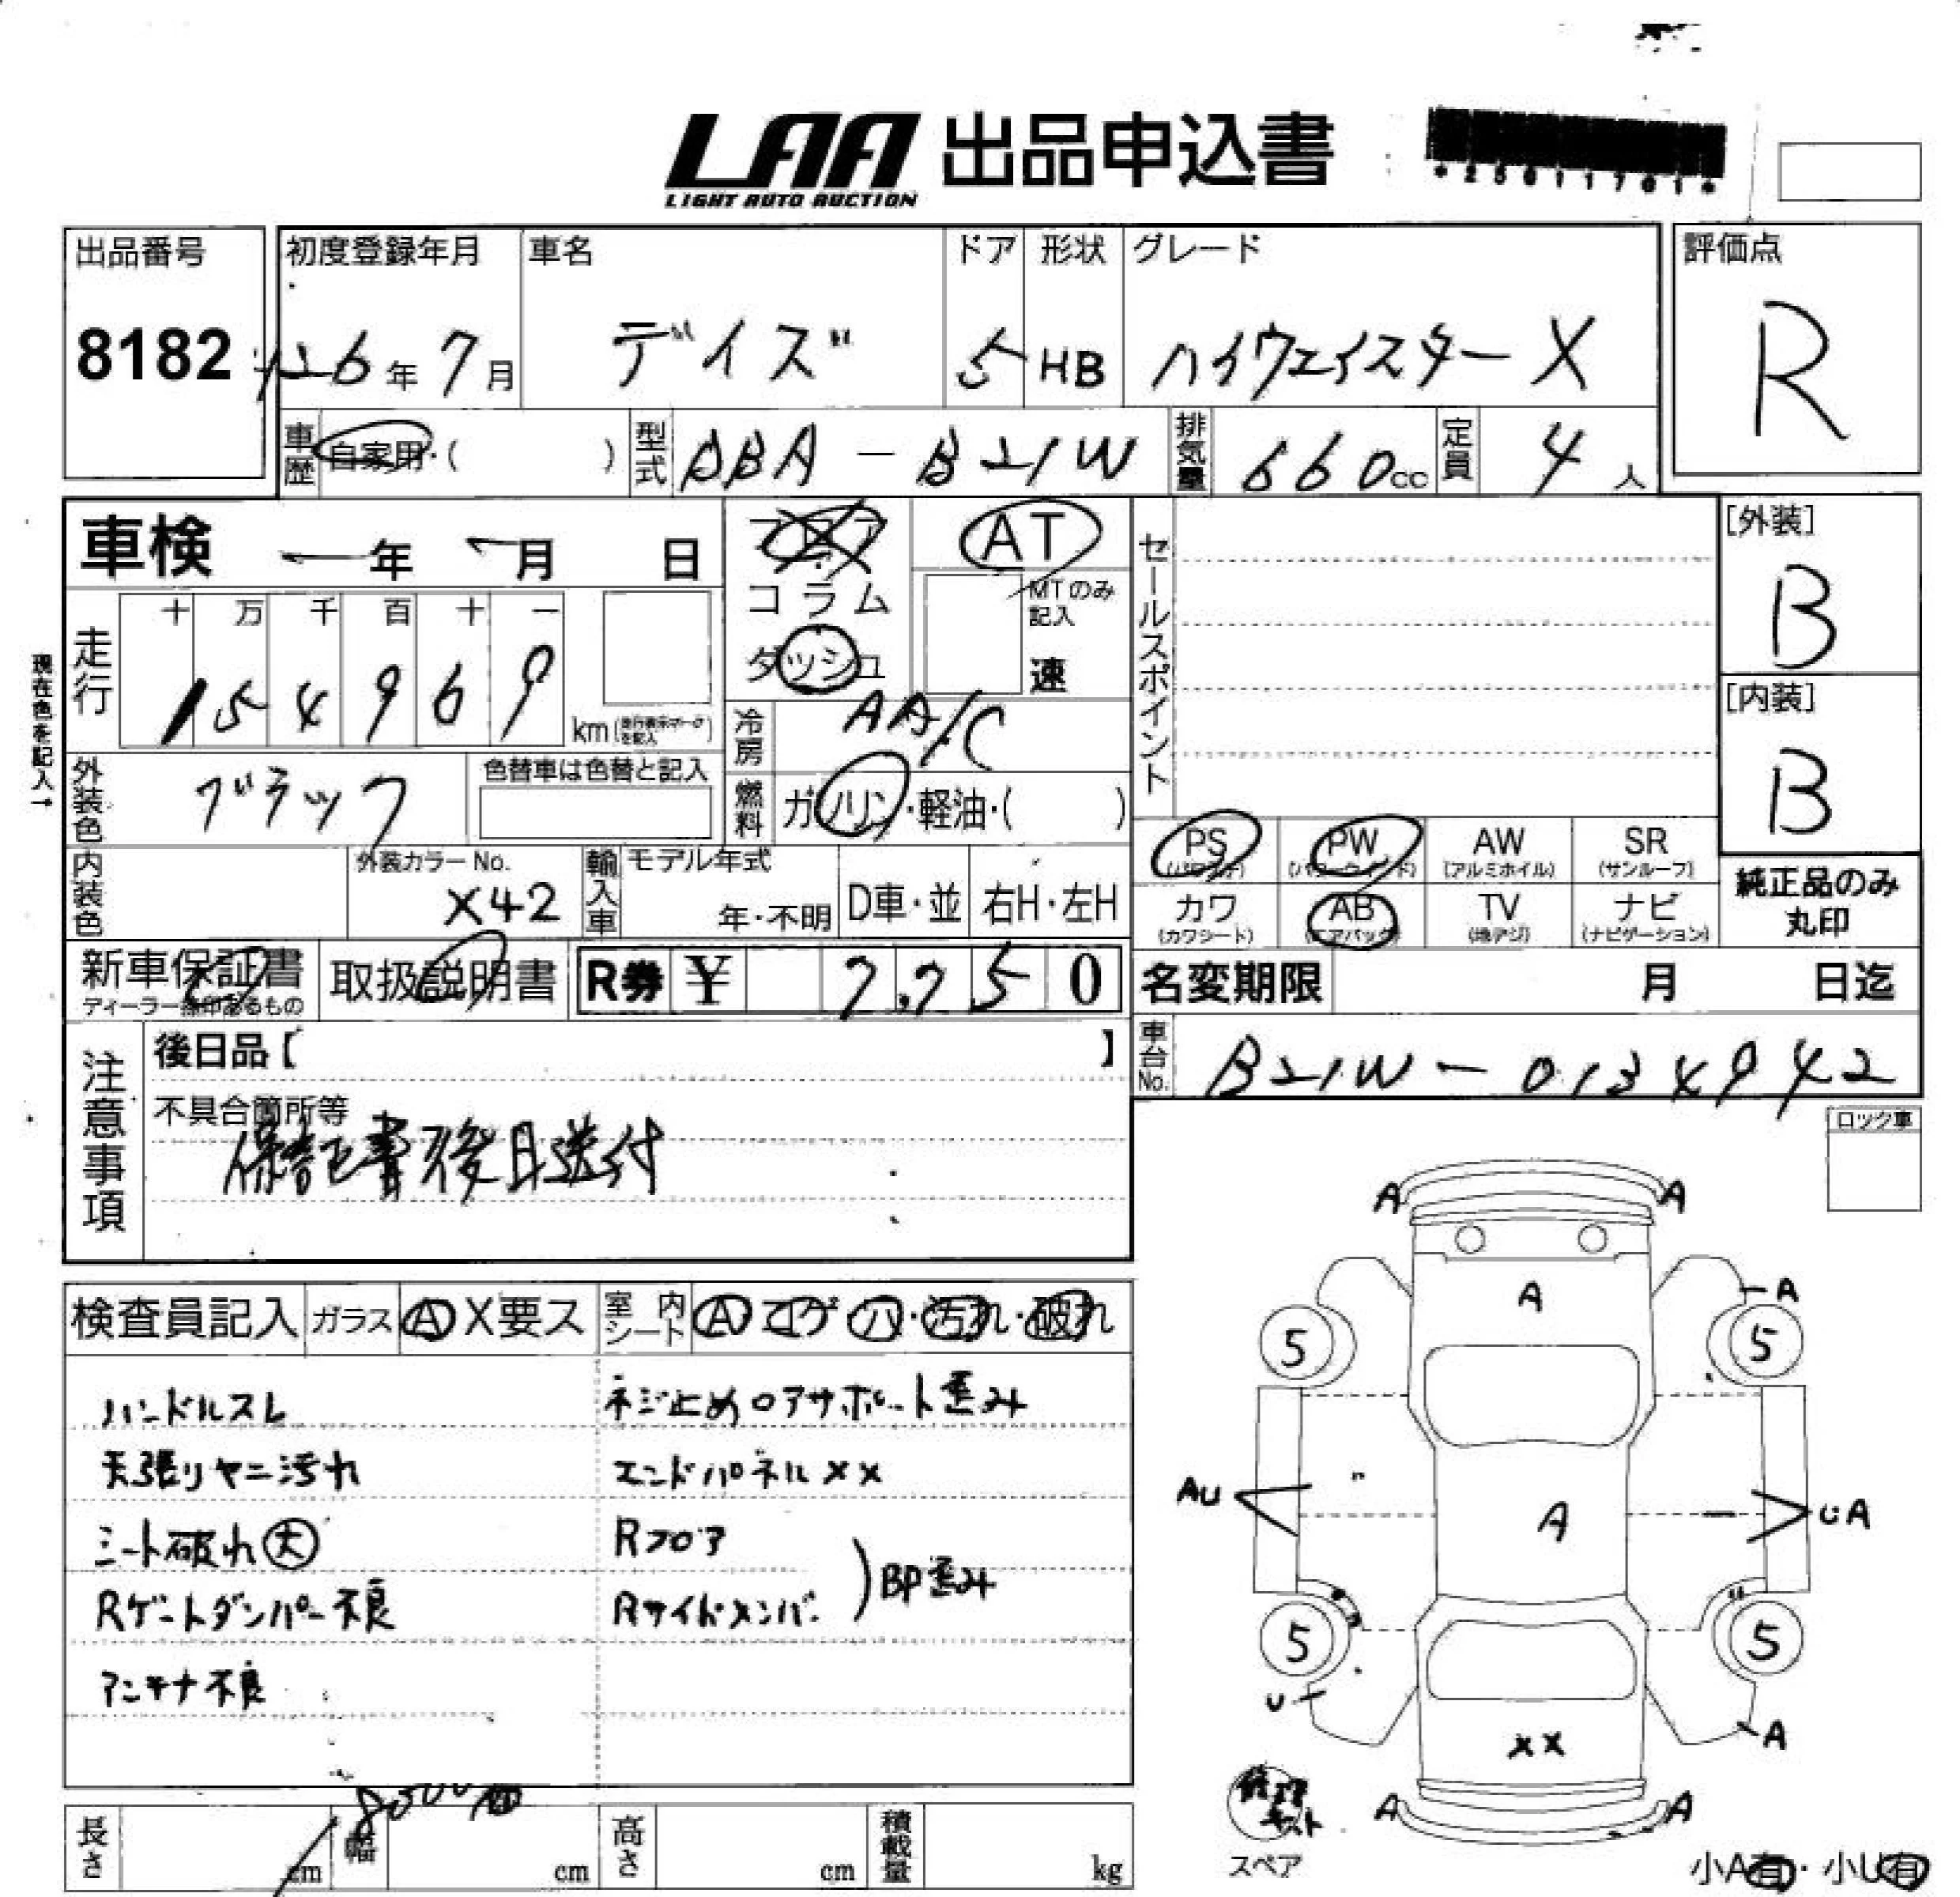 LAA 出品申込書
LIGHT AUTO AUCTION
*25011701*
出品番号
8182
初度登録年月
26年7月
車名
デイズ
ドア
5
形状
HB
グレード
ハイウェイスターX
評価点
R
車歴
自家用・( )
型式
DBA-B21W
排気量
660cc
定員
4人
車検
年 月 日
フロア
コラム
ダッシュ
AT
MTのみ
記入
速
セールスポイント
[外装]
B
[内装]
B
現在色を記入→
走行
十 万 千 百 十 一
154969
km
冷房
AA/C
外装色
ブラック
色替車は色替と記入
燃料
ガソリン・軽油・( )
PS
AW
(アルミホイル)
SR
(サンルーフ)
PW
カワ
(カワシート)
AB
(エアバッグ)
TV
(地デジ)
ナビ
(ナビゲーション)
純正品のみ
丸印
内装色
外装カラーNo.
X42
輸入車
モデル年式
年・不明
D車・並
右H・左H
新車保証書
取扱説明書
R券
¥
7,750
名変期限
月 日迄
車台No.
B21W-0134942
注意事項
後日品【 】
不具合箇所等
保証書後日送付
ロック車
検査員記入
ガラス
A X要ス
室内シート
A コゲ 穴・汚れ・破れ
ハンドルスレ
天張リヤニ汚れ
シート破れ大
Rゲートダンパー不良
アンテナ不良
ネジ止めロアサポート歪み
エンドパネルXX
Rフロア
Rサイドメンバー
BP歪み
A A
A
A
5 5
AU
A
UA
5 5
U
A
XX
A A
修理キット
スペア
小A有・小U有
長さ
cm
幅
cm
高さ
cm
積載量
kg